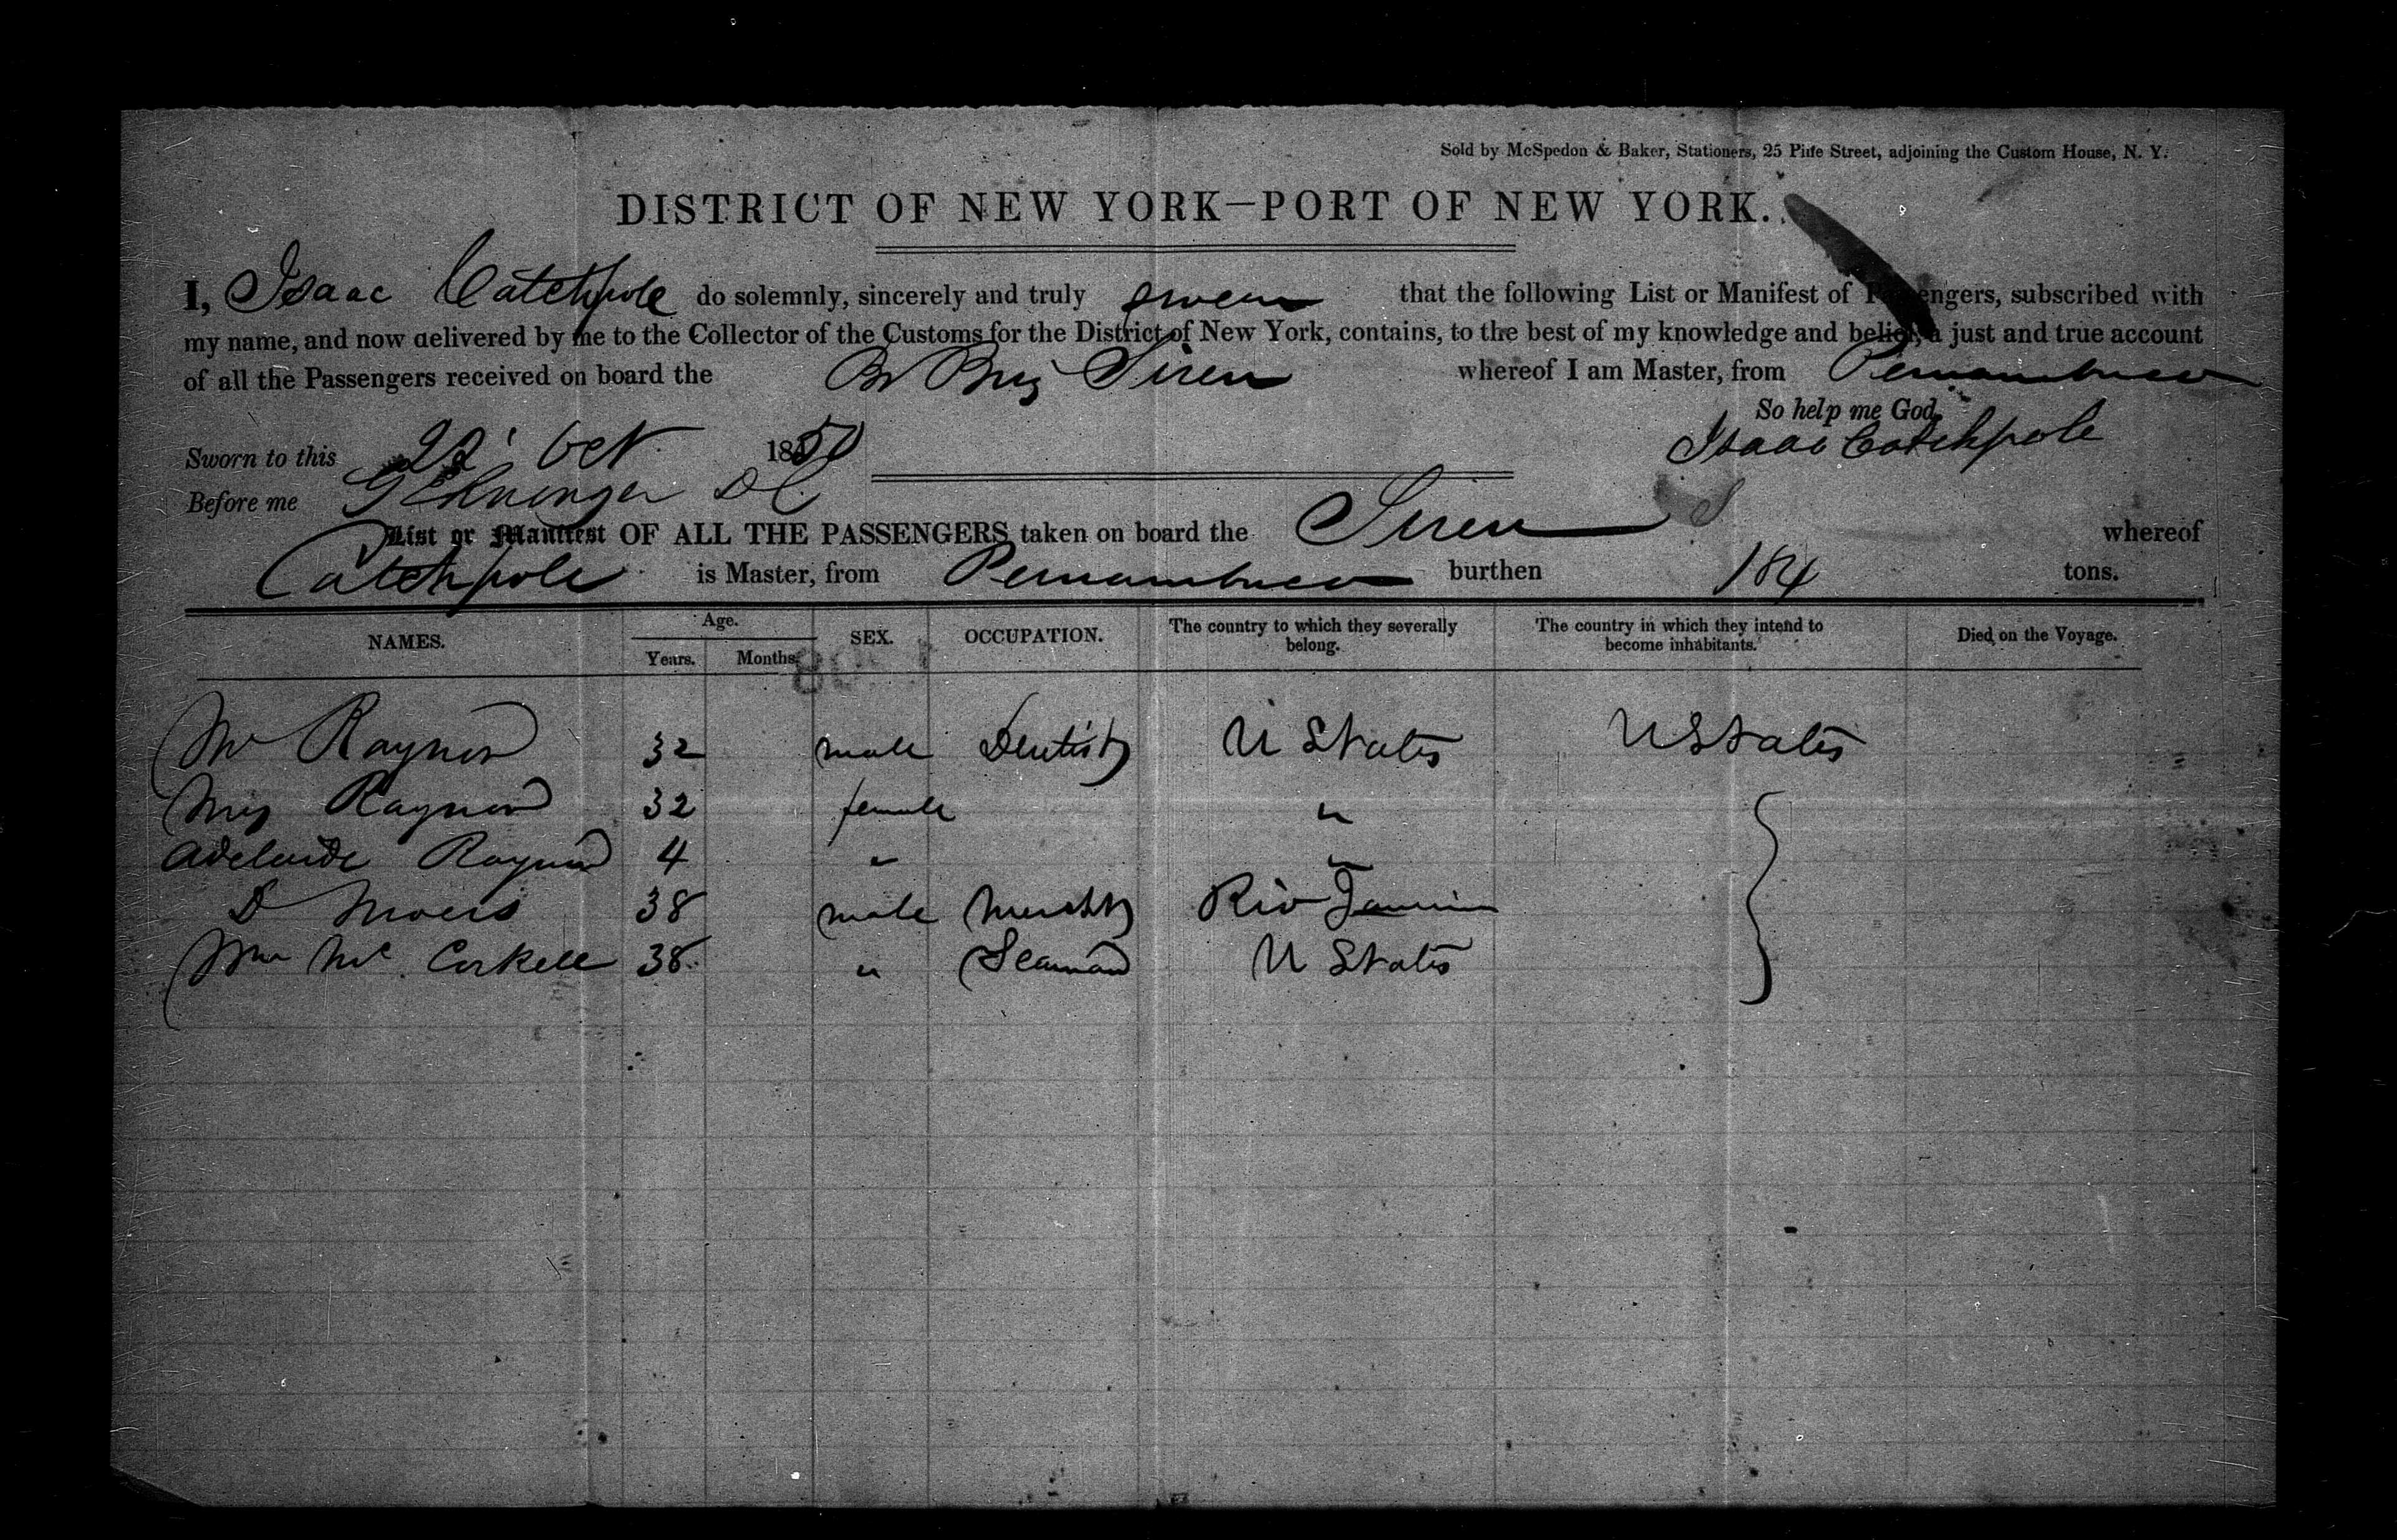 Sold by McSpedon & Baker, Stationers, 25 Pine Street, adjoining the Custom House, N. Y.
DISTRICT OF NEW YORK—PORT OF NEW YORK.
I, Isaac Catchpole do solemnly, sincerely and truly swear that the following List or Manifest of Passengers, subscribed with
my name, and now delivered by me to the Collector of the Customs for the District of New York, contains, to the best of my knowledge and belief, a just and true account
of all the Passengers received on board the Br Brig Siren whereof I am Master, from Pernambuco
So help me God.
Sworn to this 22 Oct 1850 Isaac Catchpole
Before me
List or Manifest OF ALL THE PASSENGERS taken on board the Siren whereof
Catchpole is Master, from Pernambuco burthen 184 tons.
NAMES. Age. Years. Months. SEX. OCCUPATION. The country to which they severally belong. The country in which they intend to become inhabitants. Died on the Voyage.
Mr Raynor 32 male Dentist U States U States
Mrs Raynor 32 female "
Adelaide Raynor 4 " "
D 38 male Mercht Rio Janeiro
Wm Mc Corkell 38 " Seaman U States